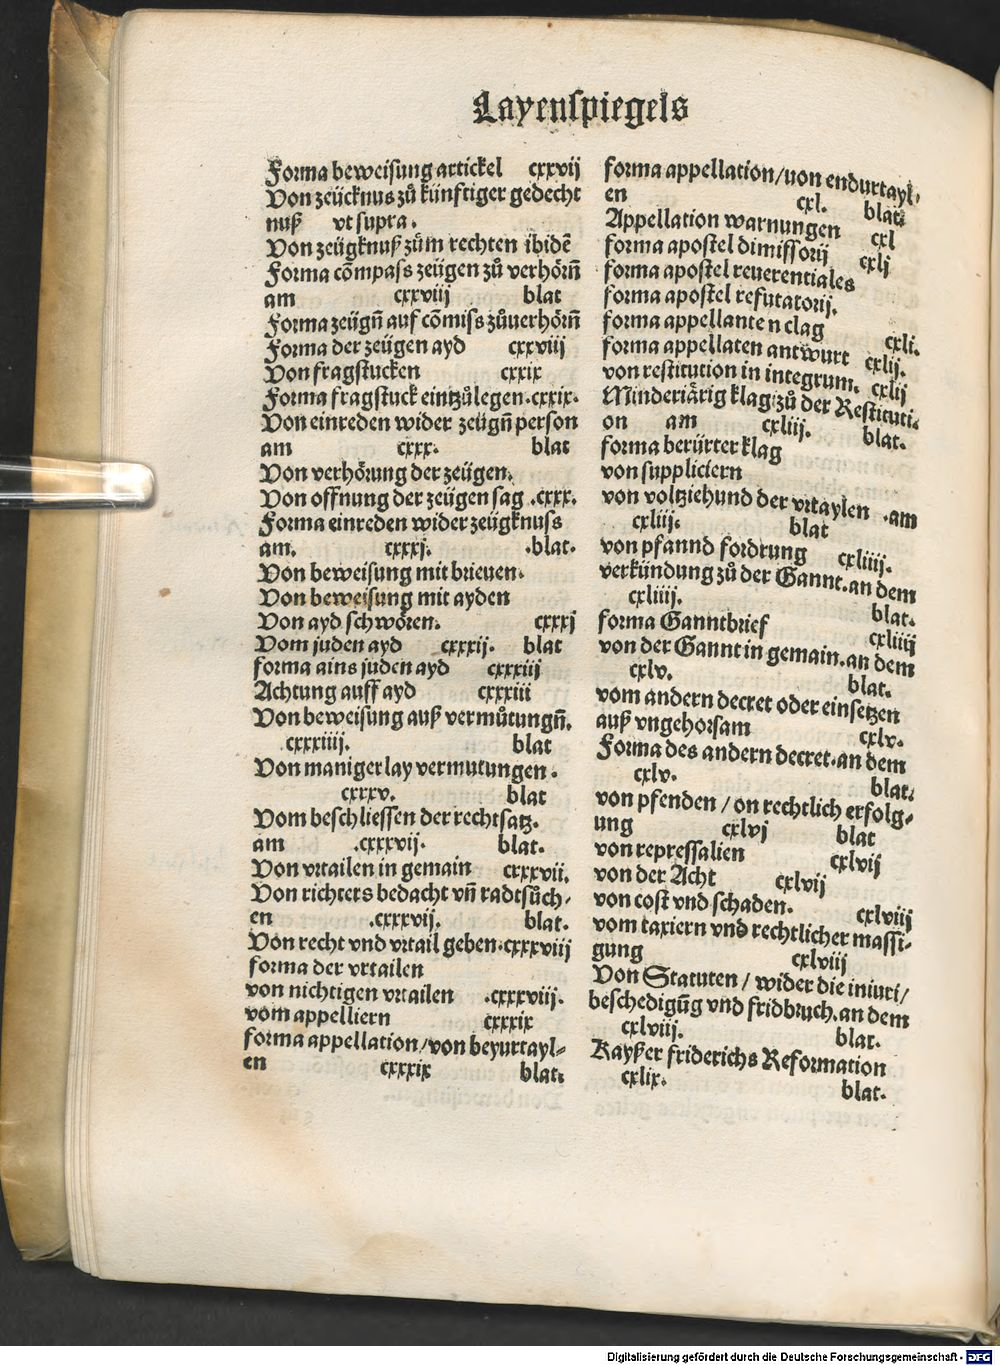 Layenspiegels
Forma beweisung artickel cxxvij
Von zeücknus zů künftiger gedecht
nuß vt supra.
Von zeügknuß zům rechten ibidē
Forma cōmpass zeügen zů verhörn̄
am cxxviij blat
Forma zeügn̄ auf cōmiss zůuerhörn̄
Forma der zeügen ayd cxxviij
Von fragstucken cxxix
Forma fragstuck eintzůlegen.cxxix.
Von einreden wider zeügn̄ person
am cxxx. blat
Von verhörung der zeügen.
Von offnung der zeügen sag .cxxx.
Forma einreden wider zeügknuss
am. cxxxj. .blat.
Von beweisung mit brieuen.
Von beweisung mit ayden
Von ayd schwören. cxxxj
Vom juden ayd cxxxij. blat
forma ains juden ayd cxxxiij
Achtung auff ayd cxxxiii
Von beweisung auß vermůtungn̄.
.cxxxiiij. blat
Von maniger lay vermutungen.
cxxxv. blat
Vom beschliessen der rechtsatz.
am .cxxxvij. blat.
Von vrtailen in gemain cxxxvii.
Von richters bedacht vn̄ radtsůch-
en .cxxxvij. blat.
Von recht vnd vrtail geben.cxxxviij
forma der vrtailen
von nichtigen vrtailen .cxxxviij.
vom appelliern cxxxix
forma appellation/von beyurtayl-
en cxxxix blat.
forma appellation/uon endurtayl-
en cxl. blat.
Appellation warnungen cxl
forma apostel dimissorij cxlj
forma apostel reuerentiales
forma apostel refutatorij.
forma appellanten clag cxli.
forma appellaten antwurt cxlij.
von restitution in integrum. cxlij
Minderiärig klag zů der Restituti-
on am cxliij. blat.
forma berürter klag
von suppliciern
von voltziehund der vrtaylen .am
cxliij. blat
von pfannd fordrung cxliiij.
verkündung zů der Gannt.an dem
cxliiij. blat.
forma Ganntbrief cxliiij
von der Gannt in gemain.an dem
cxlv. blat.
vom andern decret oder einsetzen
auß vngehorsam cxlv.
Forma des andern decret.an dem
cxlv. blat.
von pfenden / on rechtlich erfolg-
ung cxlvj blat
von repressalien cxlvij
von der Acht cxlvij
von cost vnd schaden. cxlviij
vom taxiern vnd rechtlicher massi-
gung cxlviij
Von Statuten / wider die iniuri/
beschedigūg vnd fridbruch.an dem
cxlviij. blat.
Kayßer friderichs Reformation
cxlix. blat.
Digitalisierung gefördert durch die Deutsche Forschungsgemeinschaft - DFG